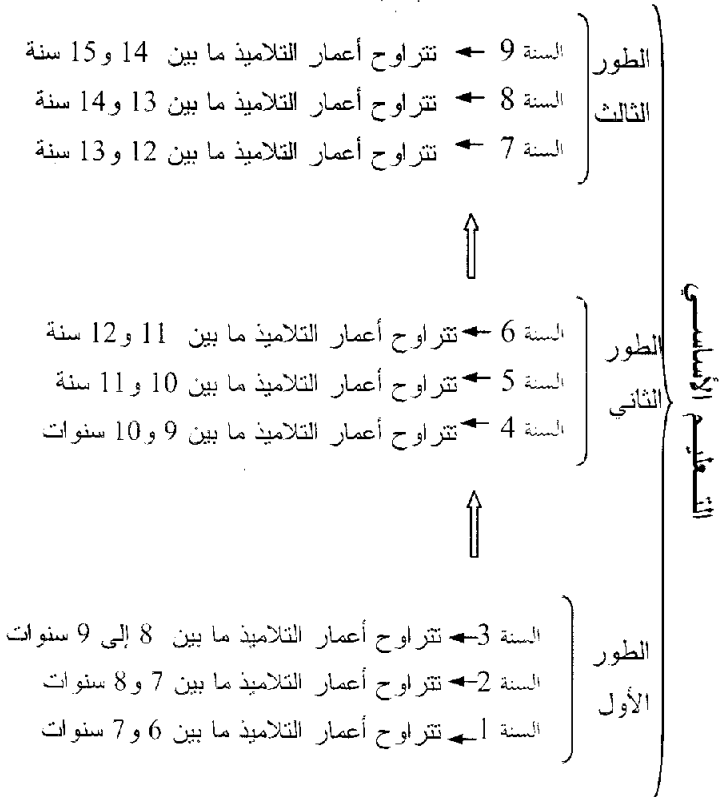 التعليم الأساسي
الطور الثالث
السنة 9 ← تتراوح أعمار التلاميذ ما بين 14 و 15 سنة
السنة 8 ← تتراوح أعمار التلاميذ ما بين 13 و 14 سنة
السنة 7 ← تتراوح أعمار التلاميذ ما بين 12 و 13 سنة
الطور الثاني
السنة 6 ← تتراوح أعمار التلاميذ ما بين 11 و 12 سنة
السنة 5 ← تتراوح أعمار التلاميذ ما بين 10 و 11 سنة
السنة 4 ← تتراوح أعمار التلاميذ ما بين 9 و 10 سنوات
الطور الأول
السنة 3 ← تتراوح أعمار التلاميذ ما بين 8 إلى 9 سنوات
السنة 2 ← تتراوح أعمار التلاميذ ما بين 7 و 8 سنوات
السنة 1 ← تتراوح أعمار التلاميذ ما بين 6 و 7 سنوات